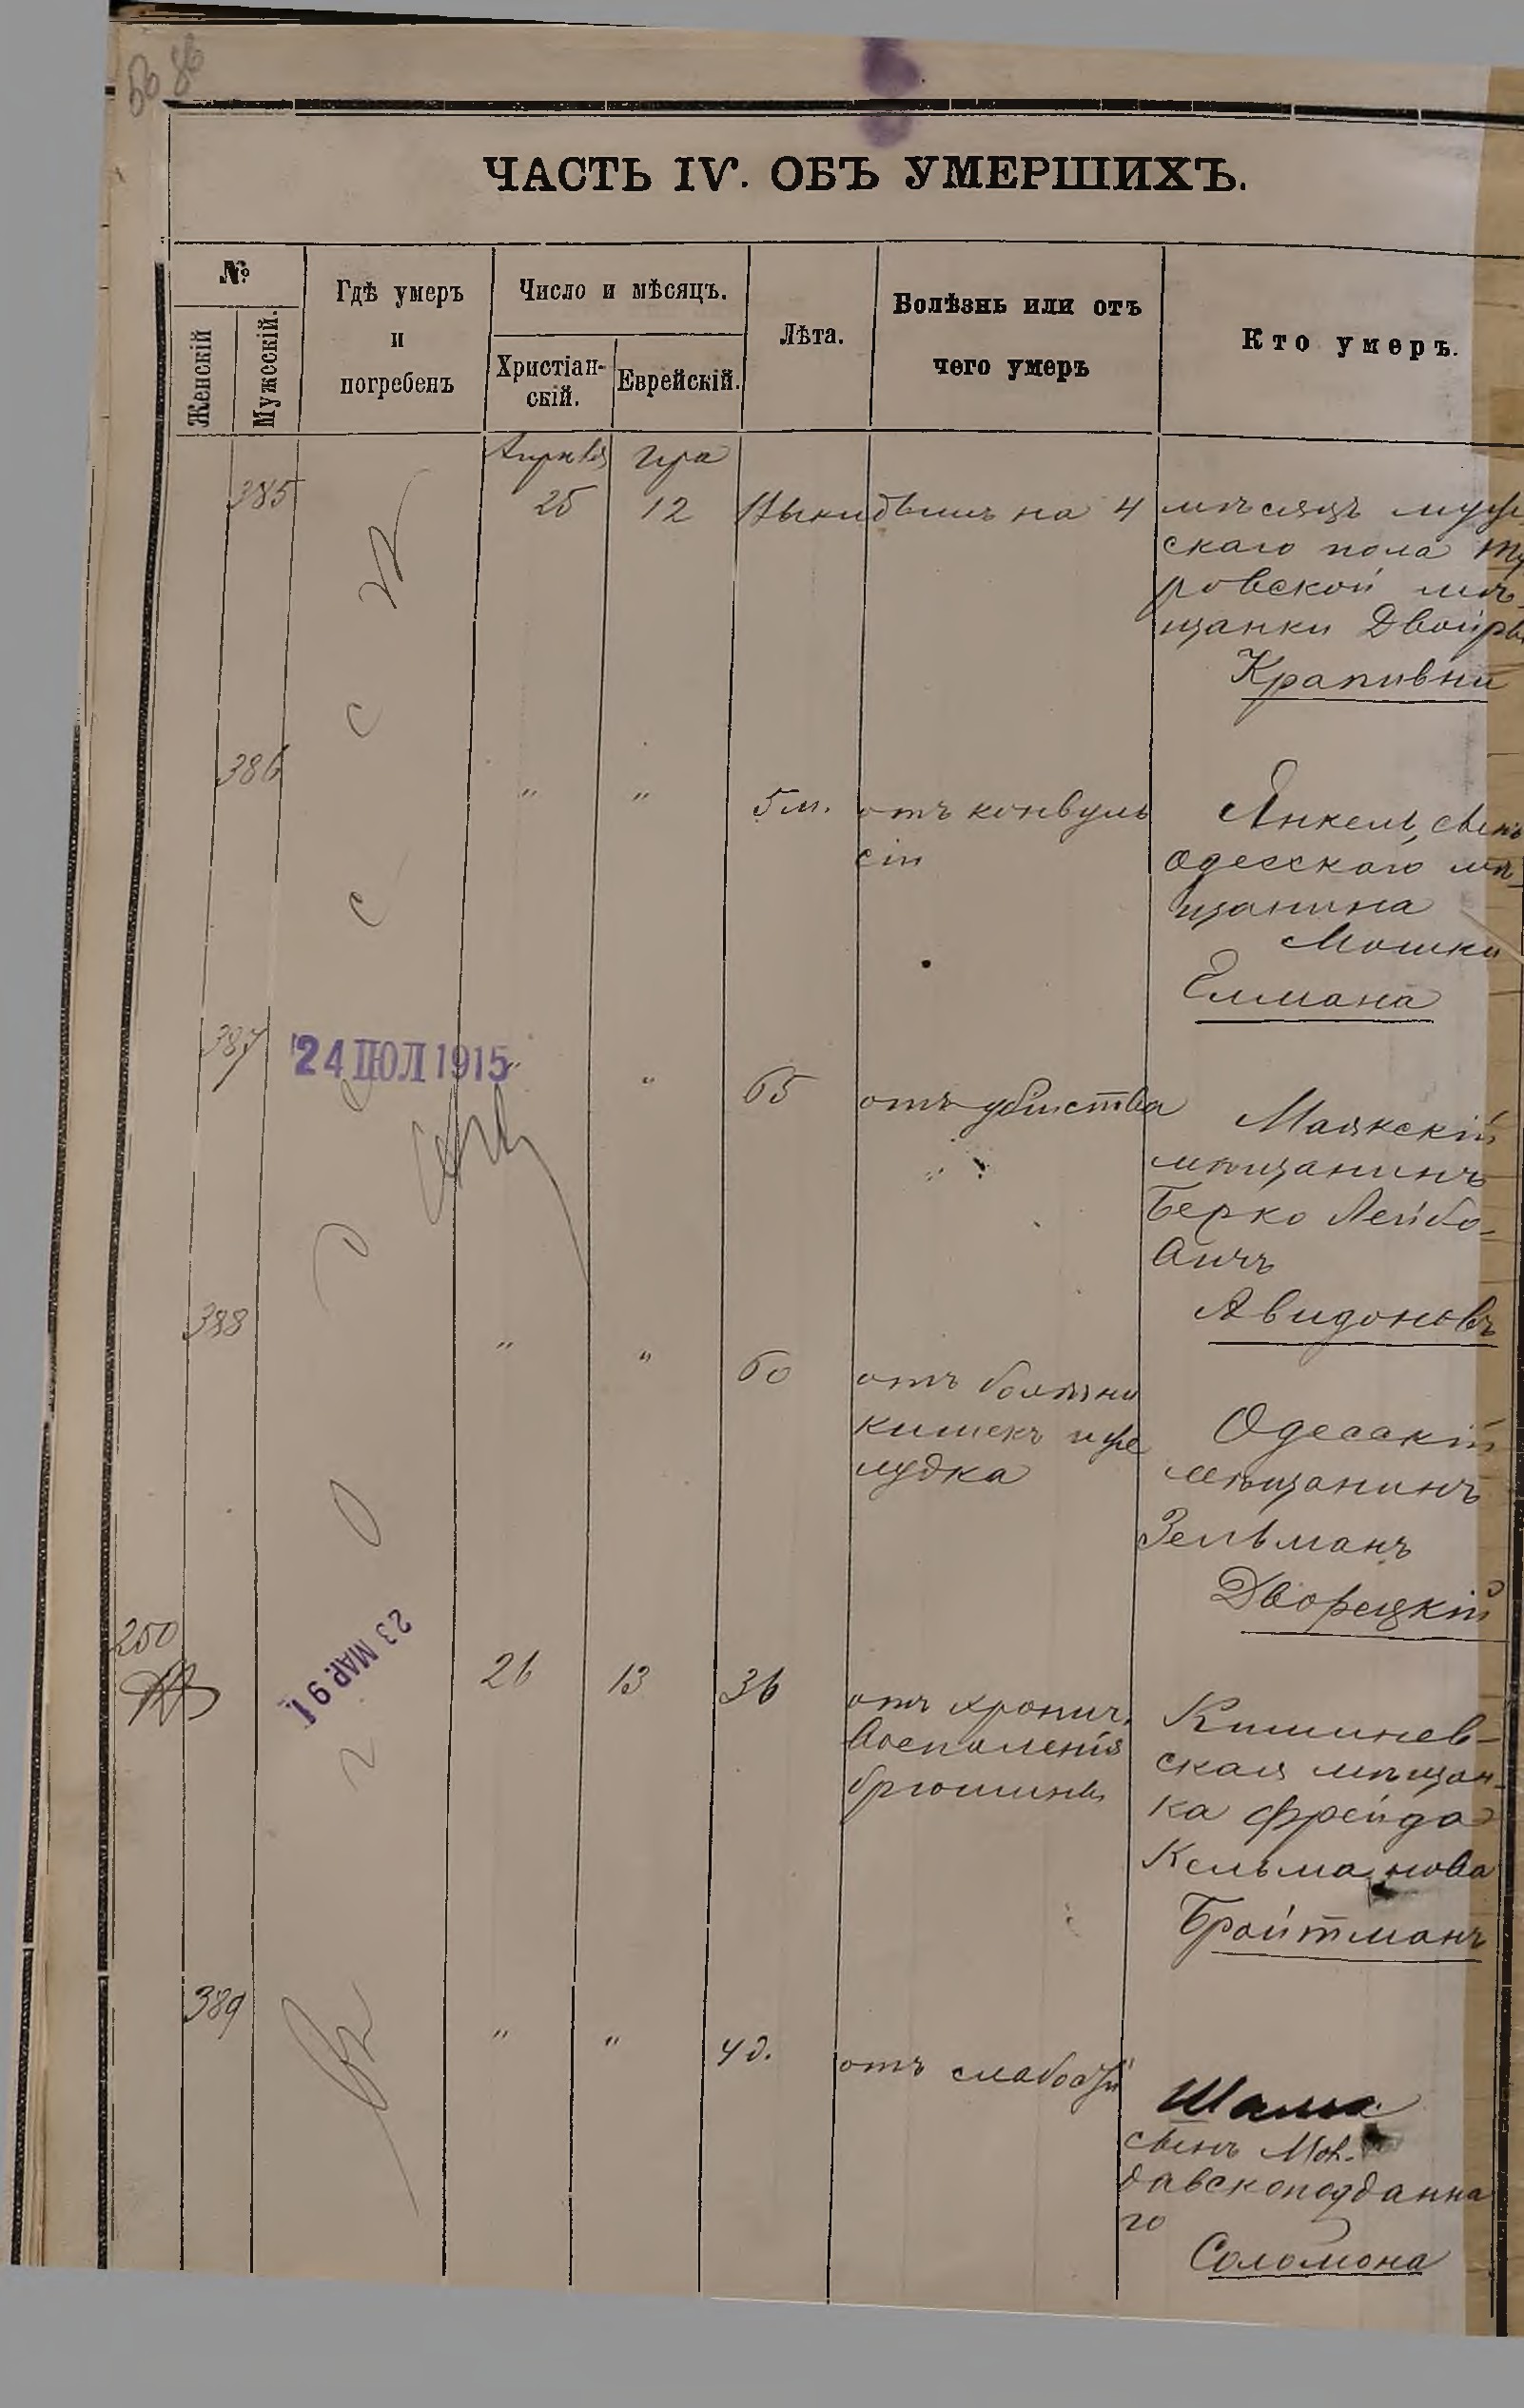 ЧАСТЬ IV. ОБЪ УМЕРШИХЪ.
№
Женскій
Мужескій.
Гдѣ умеръ
и
погребенъ
Число и мѣсяцъ.
Христіан-
скій.
Еврейскій.
Лѣта.
Болѣзнь или отъ
чего умеръ
Кто умеръ.
Апрѣля Ира
385 25 12 Выкидышъ на 4 мѣсяцѣ муж
скаго пола
ровской мѣ-
щанки Двойры
Крапивни
386 " " 5 м. отъ конвуль
сіи
Янкель, сынъ
Одесскаго мѣ-
щанина
Мошки
Елмана
387 " " 65 отъ убійства
24 ІЮЛ 1915
Маякскій
мѣщанинъ
Берко Лейбо-
вичъ
Авидоновъ
388 " " 60 отъ болѣзни
кишекъ и же
лудка
Одесскій
мѣщанинъ
Зельманъ
Дворецкій
250 26 13 36 отъ хронич.
воспаленія
брюшины
23 МАР. 91
Кишинев-
ская мѣщан-
ка Фрейда
Кельманова
Бройтманъ
389 " " 4 д. отъ слабости
сынъ Мол-
давскоподданна
го
Соломона
въ Одессѣ